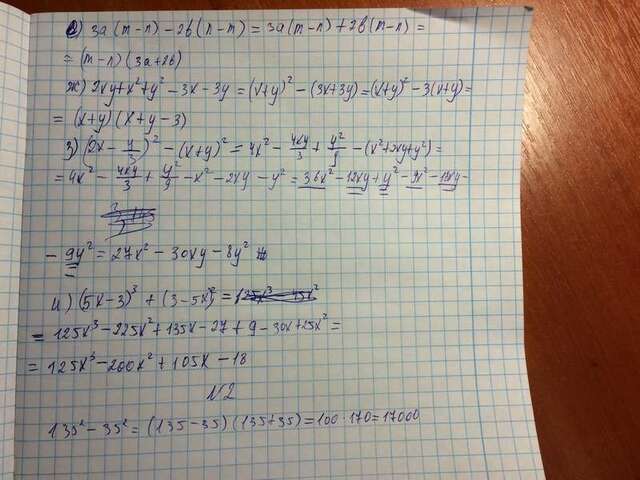 е) 3a(m-n) - 2b(n-m) = 3a(m-n) + 2b(m-n) =
= (m-n)(3a+2b)
ж) 2xy + x² + y² - 3x - 3y = (x+y)² - (3x+3y) = (x+y)² - 3(x+y) =
= (x+y)(x+y-3)
з) (2x - y/3)² - (x+y)² = 4x² - 4xy/3 + y²/9 - (x²+2xy+y²) =
= 4x² - 4xy/3 + y²/9 - x² - 2xy - y² = 36x² - 12xy + y² - 9x² - 18xy -
- 9y² = 27x² - 30xy - 8y²
и) (5x-3)³ + (3-5x)² =
= 125x³ - 225x² + 135x - 27 + 9 - 30x + 25x² =
= 125x³ - 200x² + 105x - 18
N2
135² - 35² = (135-35)(135+35) = 100 · 170 = 17000